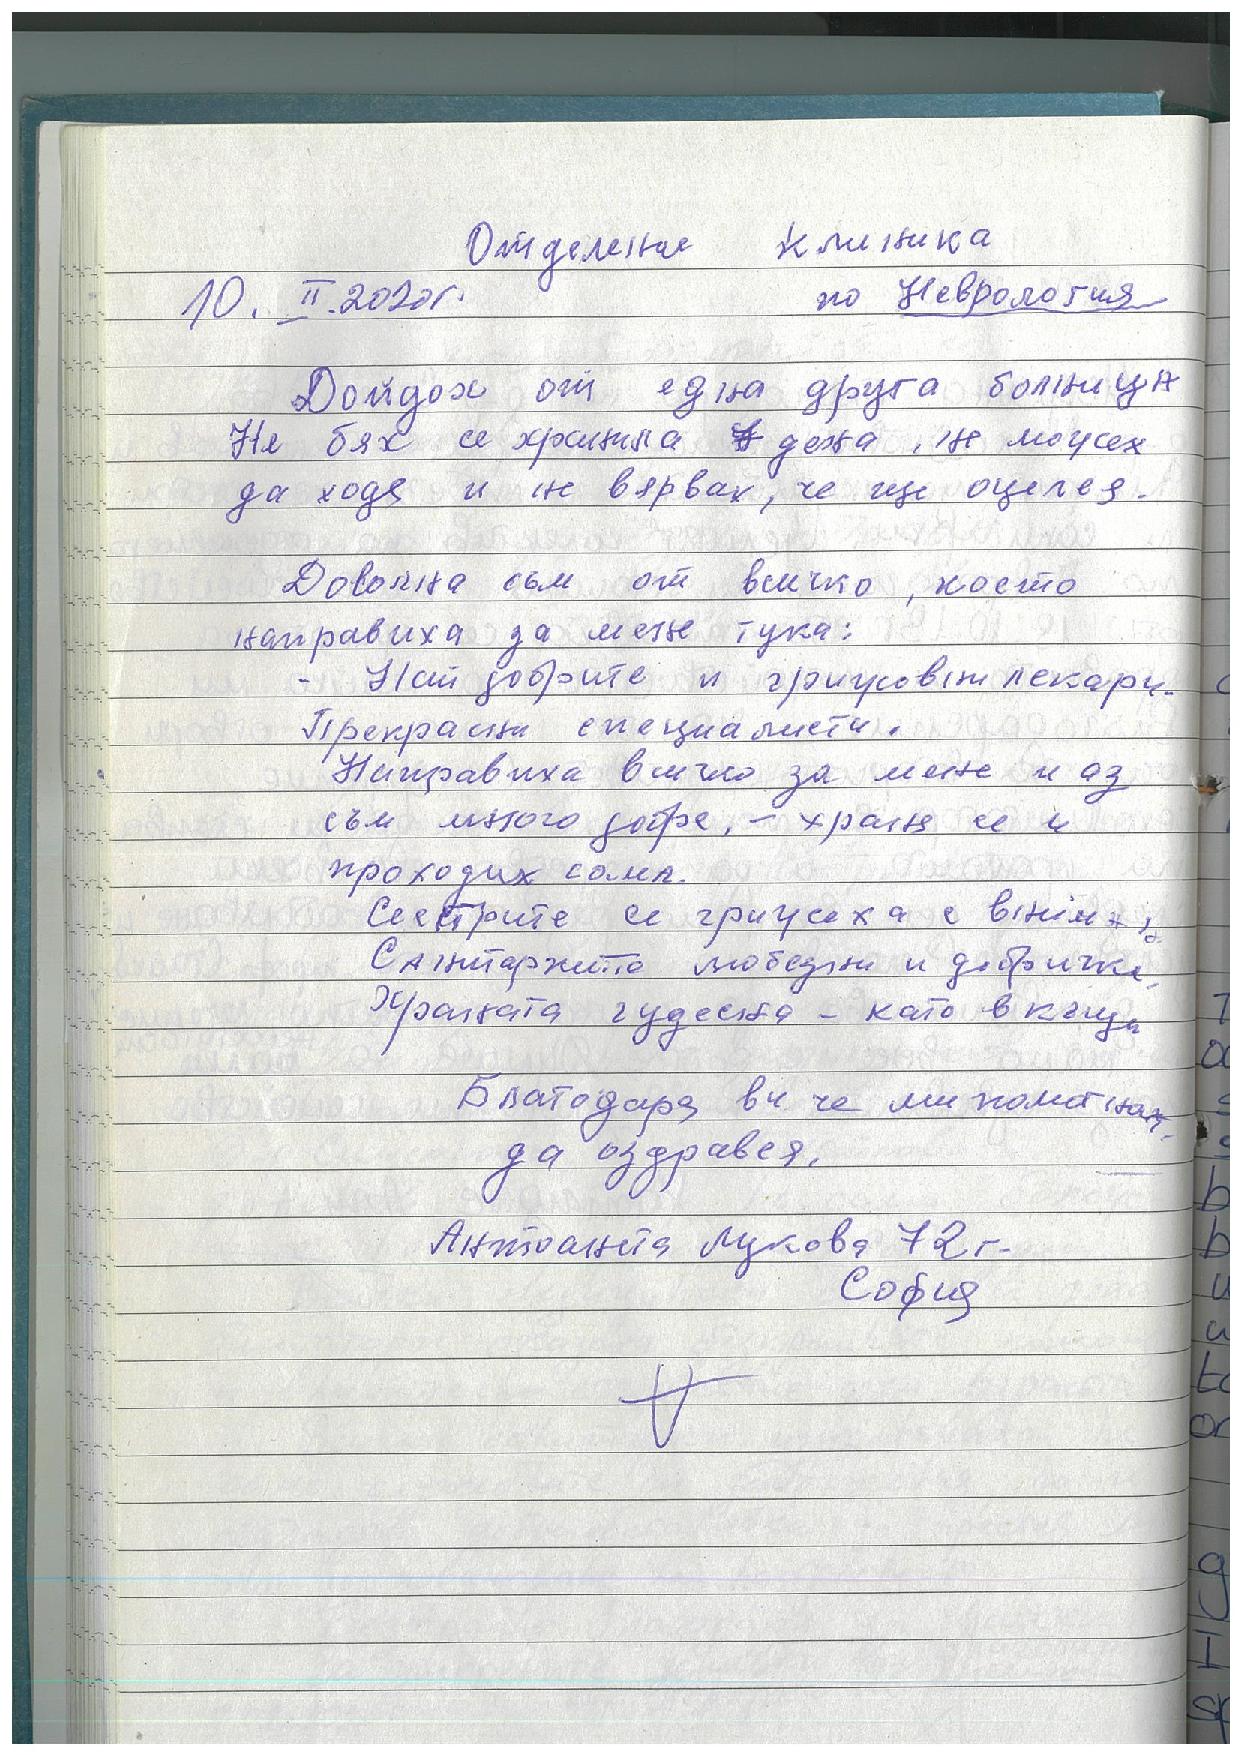 Отделение Клиника
10. II. 2020г. по Неврология
Дойдох от една друга болница
Не бях се хранила 7 дена, не можех
да ходя и не вярвах, че ще оцелея.
Доволна съм от всичко, което
направиха за мене тука:
- Най добрите и грижовни лекари.
Прекрасни специалисти.
Направиха всичко за мене и аз
съм много добре, - храня се и
проходих сама.
Сестрите се грижеха с
Санитарките любезни и добрички,
Храната чудесна - като в къщи
Благодаря ви че ми помогнахте
да оздравея.
Антоанета Лукова 72 г.
София